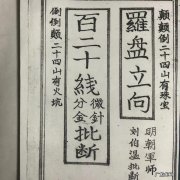 顛顛倒二十四山有珠宝
羅盘立向
明朝軍师
刘伯温批断
百二十綫
微針
分金
批断
倒倒顛二十四山有火坑